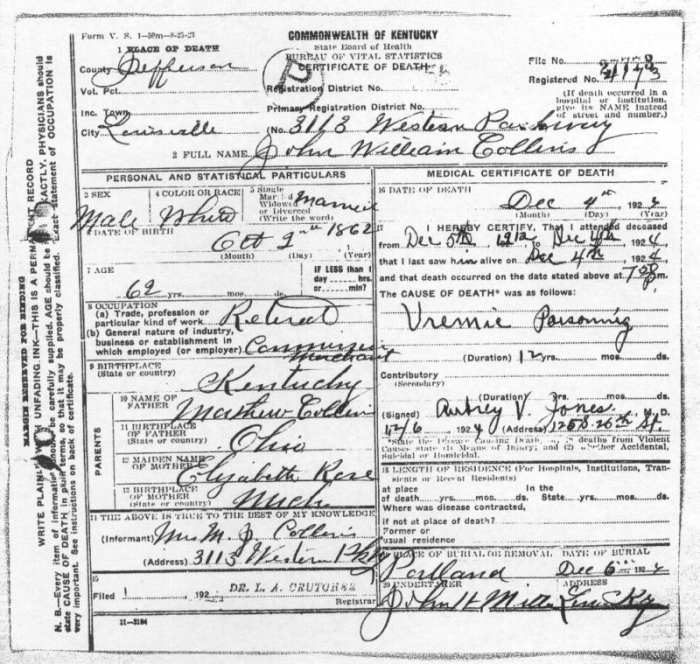 Form V. S. 1-50m-8-25-21
COMMONWEALTH OF KENTUCKY
State Board of Health
BUREAU OF VITAL STATISTICS
CERTIFICATE OF DEATH
1 PLACE OF DEATH
County Jefferson
Vol. Pct.
Inc. Town
City Louisville
Registration District No.
Primary Registration District No.
(No. 3113 Western Parkway
File No.
Registered No.
(If death occurred in a
hospital or institution,
give its NAME instead
of street and number.)
2 FULL NAME John William Collins
PERSONAL AND STATISTICAL PARTICULARS
3 SEX
Male
4 COLOR OR RACE
White
5 Single
Married
Widowed
or Divorced
(Write the word)
Married
6 DATE OF BIRTH
Oct 1862
(Month) (Day) (Year)
7 AGE
62 yrs. mos. ds.
IF LESS than 1
day hrs.
or min.
8 OCCUPATION
(a) Trade, profession or
particular kind of work Retired
(b) General nature of industry,
business or establishment in
which employed (or employer) Commission
Merchant
9 BIRTHPLACE
(State or country)
Kentucky
PARENTS
10 NAME OF
FATHER Mathew Collins
11 BIRTHPLACE
OF FATHER
(State or country) Ohio
12 MAIDEN NAME
OF MOTHER Elizabeth Rose
13 BIRTHPLACE
OF MOTHER
(State or country)
14 THE ABOVE IS TRUE TO THE BEST OF MY KNOWLEDGE
(Informant) Mrs M. J. Collins
(Address) 3113 Western Pky
15
Filed 1 , 192
DR. L. A. CRUTCHER
Registrar
11-3184
MEDICAL CERTIFICATE OF DEATH
16 DATE OF DEATH
Dec 4th 1924
(Month) (Day) (Year)
17 I HEREBY CERTIFY, That I attended deceased
from Dec 5th, 1912, to Dec 4th 1924,
that I last saw him alive on Dec 4th, 1924
and that death occurred on the date stated above at m.
The CAUSE OF DEATH* was as follows:
Uremic Poisoning
(Duration) 12 yrs. mos. ds.
Contributory
(Secondary)
(Duration) yrs. mos. ds.
(Signed) Aubrey V. Jones, M. D.
12/6 1924 (Address) 26th St.
*State the Disease Causing Death, or, in deaths from Violent
Causes state (1) Means of Injury; and (2) whether Accidental,
Suicidal or Homicidal.
18 LENGTH OF RESIDENCE (For Hospitals, Institutions, Tran-
sients or Recent Residents)
at place In the
of death yrs. mos. ds. State yrs. mos. ds.
Where was disease contracted,
if not at place of death?
Former or
usual residence
19 PLACE OF BURIAL OR REMOVAL DATE OF BURIAL
Portland Dec 6 1924
20 UNDERTAKER ADDRESS
John H Miller Lou Ky
MARGIN RESERVED FOR BINDING
WRITE PLAINLY, WITH UNFADING INK—THIS IS A PERMANENT RECORD
N. B.—Every item of information should be carefully supplied. AGE should be stated EXACTLY. PHYSICIANS should
state CAUSE OF DEATH in plain terms, so that it may be properly classified. Exact statement of OCCUPATION is
very important. See instructions on back of certificate.